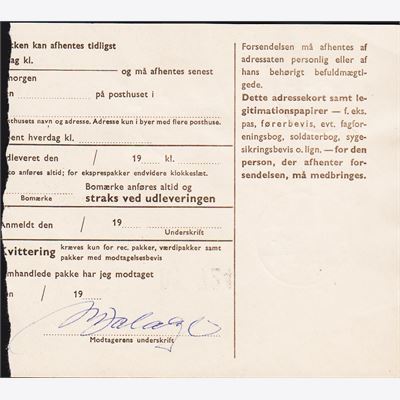 kken kan afhentes tidligst
ag kl.
og må afhentes senest
morgen
en på posthuset i
sthusets navn og adresse. Adresse kun i byer med flere posthuse.
ent hverdag kl.
dleveret den / 19 kl.
ko anføres altid; for eksprespakker endvidere klokkeslæt.
Bomærke anføres altid og
straks ved udleveringen
Bomærke
Anmeldt den / 19
Underskrift
Kvittering kræves kun for rec. pakker, værdipakker samt
pakker med modtagelsesbevis
omhandlede pakke har jeg modtaget
en / 19
Modtagerens underskrift
Forsendelsen må afhentes af
adressaten personlig eller af
hans behørigt befuldmægti-
gede.
Dette adressekort samt le-
gitimationspapirer — f. eks.
pas, førerbevis, evt. fagfor-
eningsbog, soldaterbog, syge-
sikringsbevis o. lign. — for den
person, der afhenter for-
sendelsen, må medbringes.